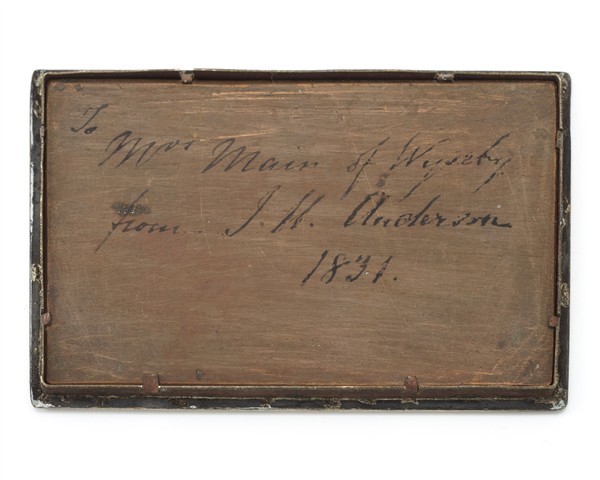 To
Mrs Main of Wyseby
from J. H. Anderson
1831.